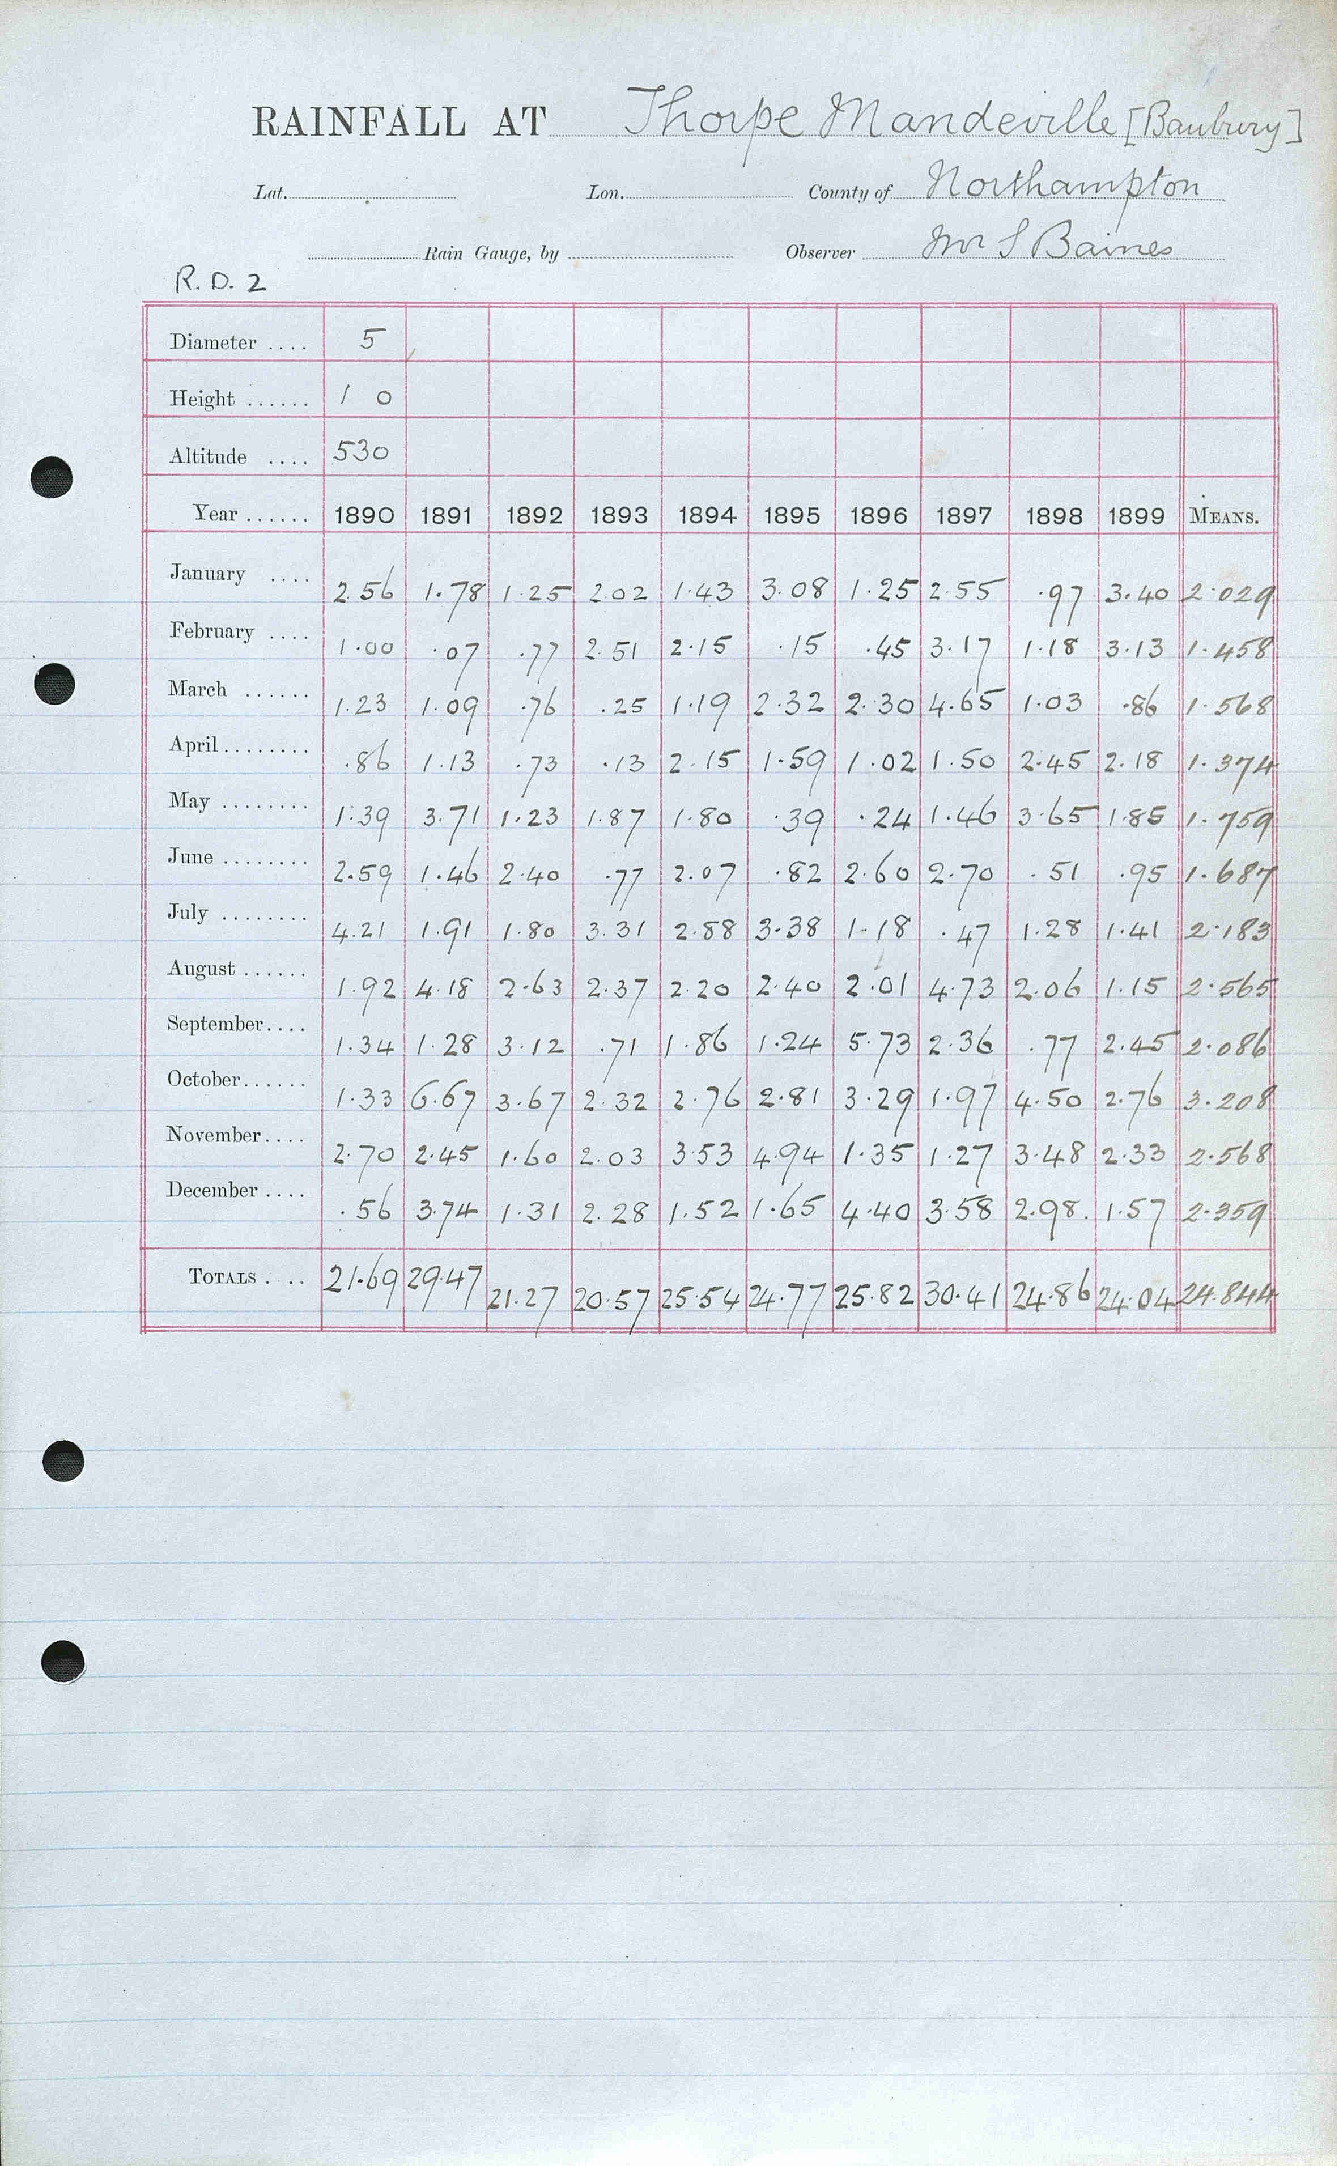 RAINFALL AT Thorpe Mandeville [Banbury]
Lat. Lon. County of Northampton
Rain Gauge, by Observer Mr S Baines
R.D.2
Diameter .... 5
Height ...... 1 0
Altitude .... 530
Year ...... 1890 1891 1892 1893 1894 1895 1896 1897 1898 1899 MEANS.
January .... 2.56 1.78 1.25 2.02 1.43 3.08 1.25 2.55 .97 3.40 2.029
February .... 1.00 .07 .77 2.51 2.15 .15 .45 3.17 1.18 3.13 1.458
March ...... 1.23 1.09 .76 .25 1.19 2.32 2.30 4.65 1.03 .86 1.568
April ........ .86 1.13 .73 .13 2.15 1.59 1.02 1.50 2.45 2.18 1.374
May ........ 1.39 3.71 1.23 1.87 1.80 .39 .24 1.46 3.65 1.85 1.759
June ........ 2.59 1.46 2.40 .77 2.07 .82 2.60 2.70 .51 .95 1.687
July ........ 4.21 1.91 1.80 3.31 2.88 3.38 1.18 .47 1.28 1.41 2.183
August ...... 1.92 4.18 2.63 2.37 2.20 2.40 2.01 4.73 2.06 1.15 2.565
September .... 1.34 1.28 3.12 .71 1.86 1.24 5.73 2.36 .77 2.45 2.086
October ...... 1.33 6.67 3.67 2.32 2.76 2.81 3.29 1.97 4.50 2.76 3.208
November .... 2.70 2.45 1.60 2.03 3.53 4.94 1.35 1.27 3.48 2.33 2.568
December .... .56 3.74 1.31 2.28 1.52 1.65 4.40 3.58 2.98. 1.57 2.359
TOTALS . .. 21.69 29.47 21.27 20.57 25.54 24.77 25.82 30.41 24.86 24.04 24.844